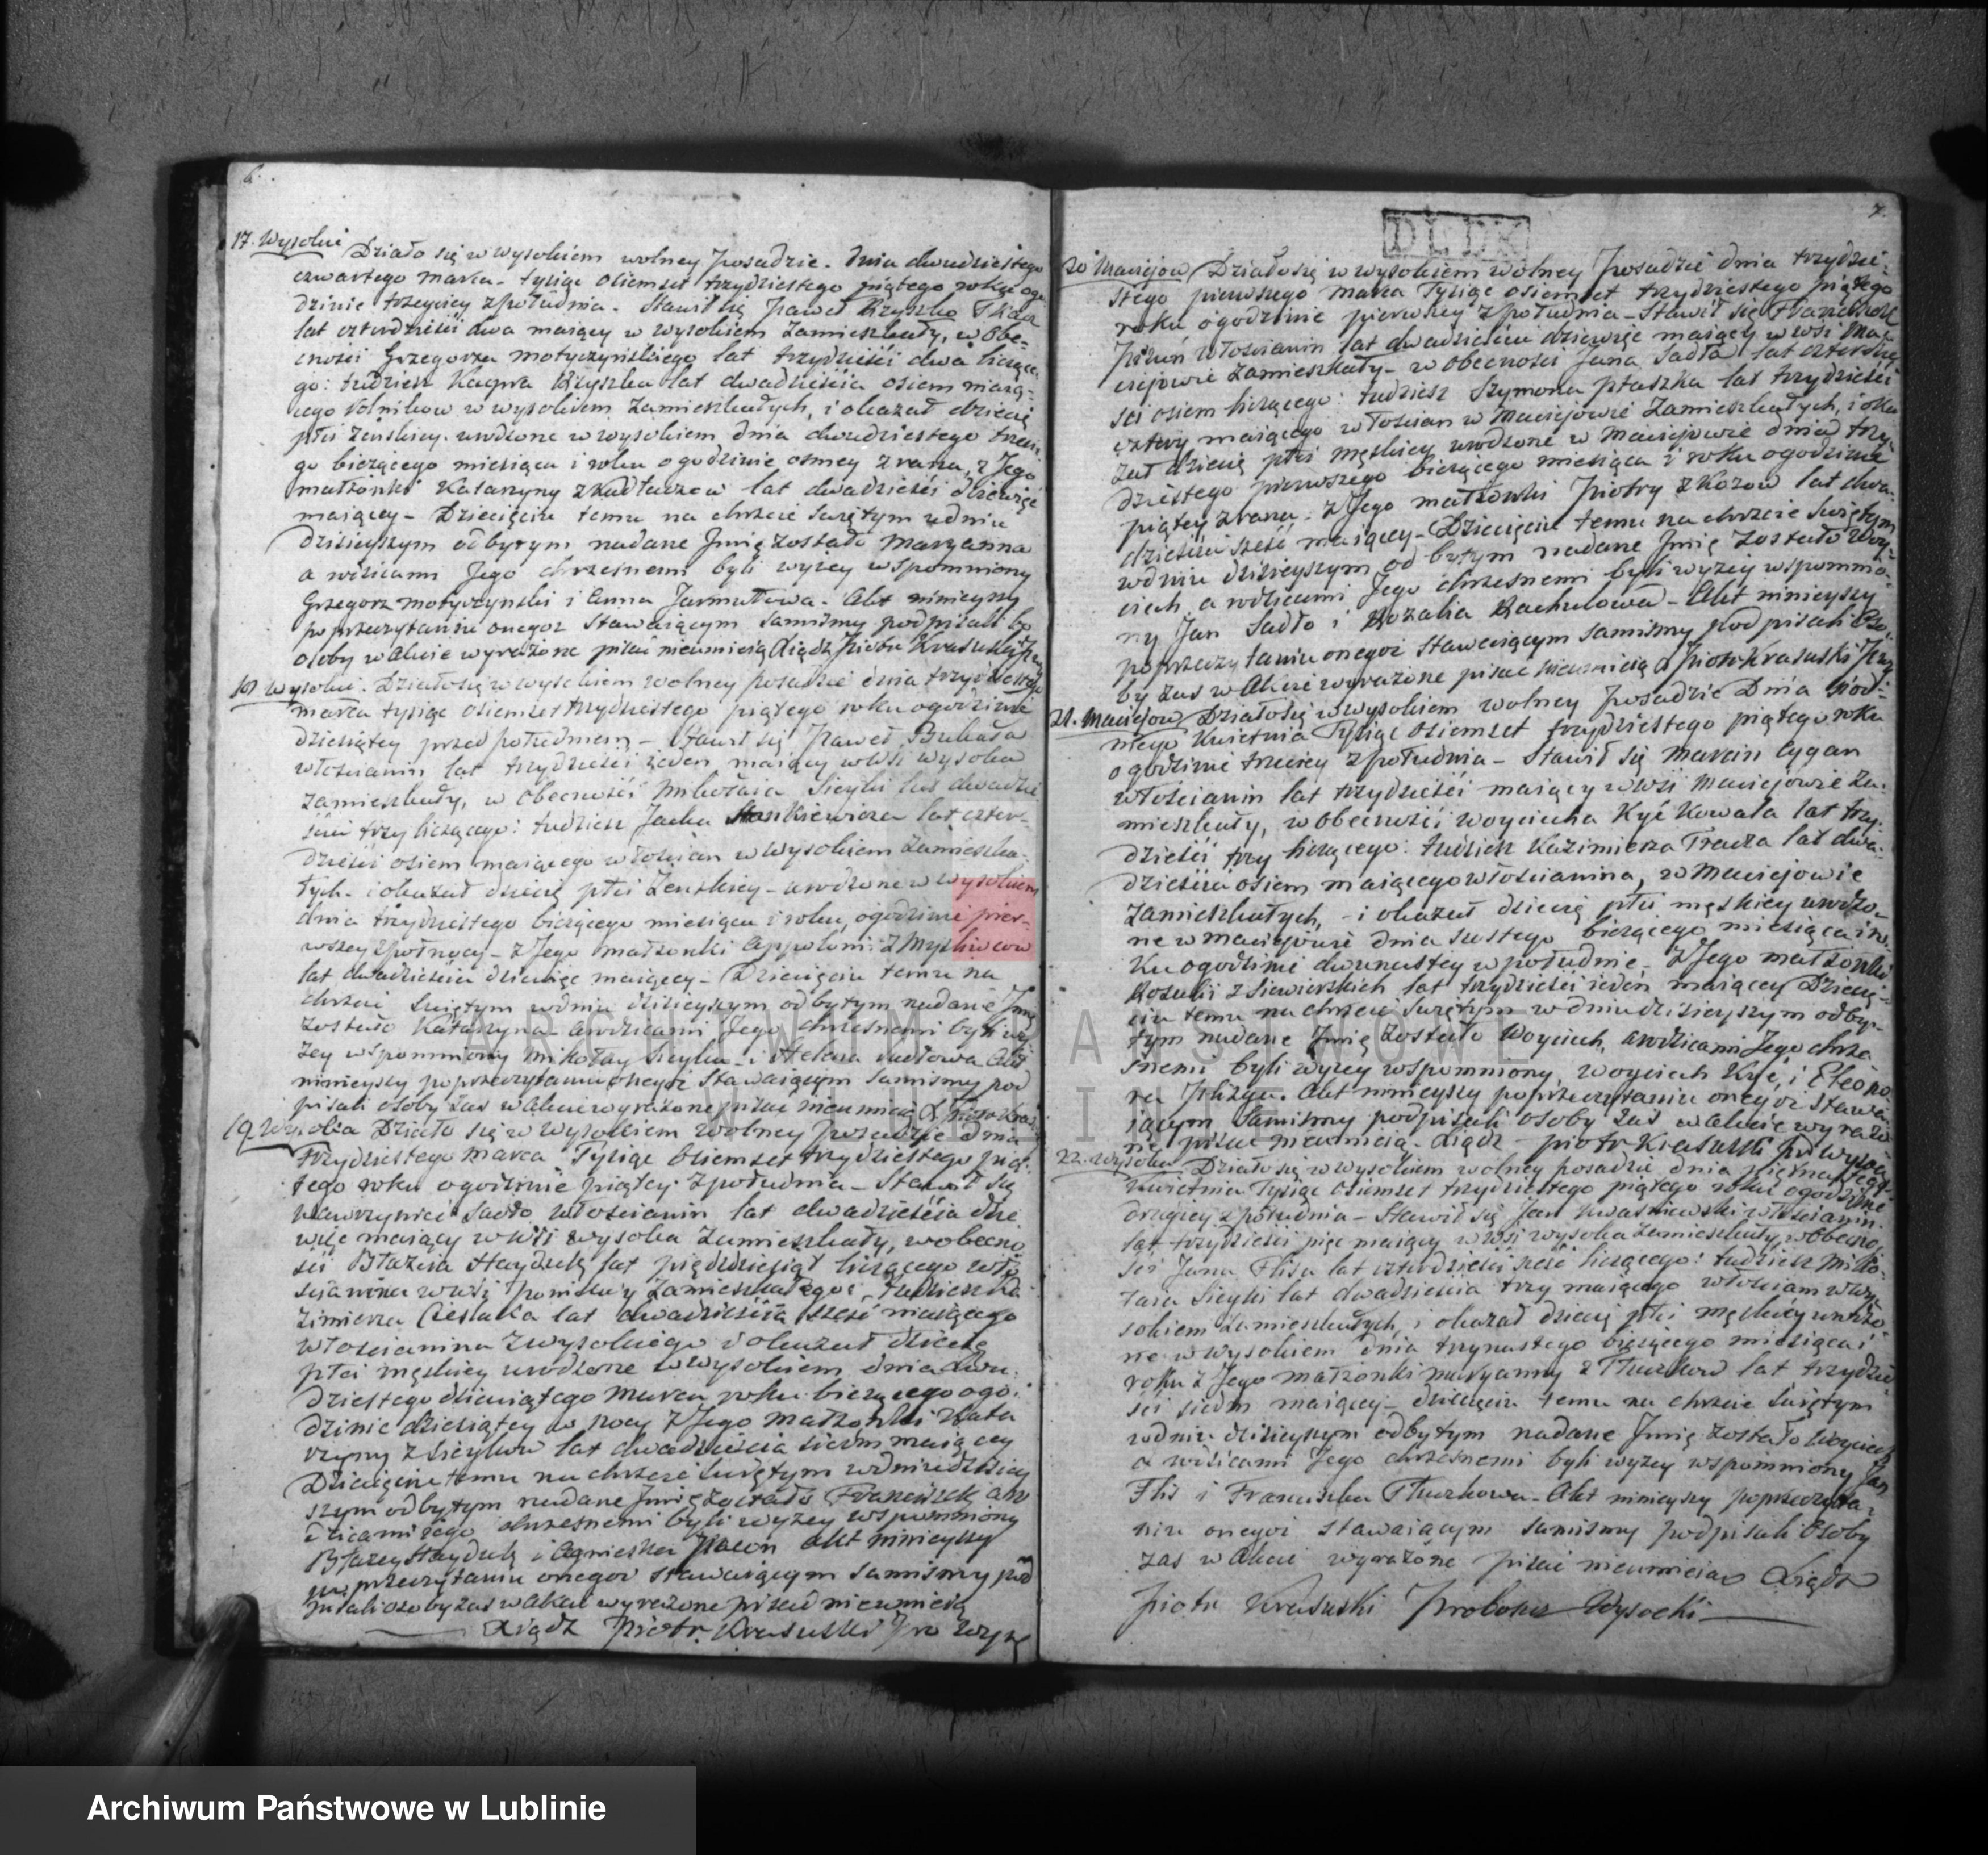 6.
17. Wysokie Działo się w wysokiem wolney Posadzie. dnia dwudziestego
czwartego marca. tysiąc osiemset trzydziestego piątego roku o go
dzinie trzeciey z południa. Stawił się Paweł Krzyszko Tkacz
lat czterdzieści dwa maiący w wysokiem Zamieszkały, w obe-
cności Grzegorza Motyczyńskiego lat trzydzieści dwa liczące
go: tudzież Kacpra Krzyszka lat dwadzieścia osiem maią-
cego rolników w wysokiem Zamieszkałych, i okazał dziecię
płci Żeńskiey. urodzone w wysokiem dnia dwudziestego trzecie
go bieżącego miesiąca i roku o godzinie osmey z rana, z Jego
małżonki Katarzyny z lat dwadzieści dziewięć
maiącey - Dziecięciu temu na chrzcie świętym w dniu
dzisieyszym odbytym nadane Imię zostało Maryanna
a rodzicami Jego chrzesnemi byli wyżey wspomniony
Grzegorz Motyczynski i Anna Jarmułowa. Akt ninieyszy
po przeczytaniu onegoż Stawaiącym samiśmy podpisali bo
osoby w Akcie wyrażone pisać nieumieią Xiądz Piotr Krasuski
18 Wysokie. Działo się w wysokiem wolney posadzie dnia trzydziestego
marca tysiąc osiemset trzydziestego piątego roku o godzinie
dziesiątey przed południem - Stawił się Paweł Bubała
włościanin lat trzydzieści jeden maiący w wsi wysokie
zamieszkały, w obecności Mikołaia Sieyki lat dwadzie
ścia trzy liczącego: tudzież Jacka Stankiewicza lat czter-
dzieści osiem maiącego włościan w Wysokiem Zamieszka-
łych. i okazał dziecię płci Żeńskiey - urodzone w wysokiem
dnia trzydziestego bieżącego miesiąca i roku, o godzinie pier-
wszey z północy - z Jego małżonki Appoloni z Myśliwców
lat dwadzieścia dziewięć maiącey - Dziecięciu temu na
chrzcie świętym w dniu dzisieyszym odbytym nadane Imię
zostało Katarzyna a rodzicami Jego chrzesnemi byli wy
żey wspomniony Mikołay Sieyka i Helena Sadłowa Akt
ninieyszy po przeczytaniu onegoż Stawaiącym samismy pod
pisali osoby zas w Akcie wyrażone pisać nieumieią X Piotr
19. Wysokie Działo się w Wysokiem wolney Posadzie dnia
Trzydziestego Marca Tysiąc Osiemset trzydziestego pią-
tego roku o godzinie piątey z południa - Stawił się
Wawrzyniec Sadło włościanin lat dwadzieścia dzie
więć maiący w wsi wysokie Zamieszkały, w obecno
ści Błażeia Hayduka lat pięćdziesiąt liczącego wło
ścianina w wsi Zamieszkałego, Tudzież Ka
zimierza Cieslaka lat dwadzieścia sześć maiącego
włościanina z wysokiego i okazał dziecię
płci męskiey urodzone w wysokiem dnia dwu-
dziestego dziewiątego Marca roku bieżącego o go-
dzinie dziesiątey w nocy z Jego Małżonki Kata
rzyny z Sieyków lat dwadzieścia siedm maią cey
Dziecięciu temu na chrzcie świętym w dniu dzisiey
szym odbytym nadane Imię zostało Franciszek a ro
dzicami Jego chrzesnemi byli wyżey wspomniony
Błażey Hayduk i Agnieszka Akt ninieyszy
po przeczytaniu onegoż stawaiącym samiśmy pod
pisali osoby zas w Akcie wyrażone pisać nieumieią
Xiądz Piotr Krasuski Pro Wys
7.
20 Maciejow Działo się w wysokiem wolney Posadzie dnia trzydzie-
stego pierwszego Marca Tysiąc osiemset trzydziestego piątego
roku o godzinie pierwszey z południa - Stawił się Franciszek
włościanin lat dwadzieścia dziewięć maiący w wsi Ma-
ciejowie Zamieszkały - w obecności Jana Sadła lat czterdzie
ści osiem liczącego: tudzież Szymona Ptaszka lat trzydzieści
cztery maiącego włościan w Maciejowie Zamieszkałych, i oka
zał dziecię płci męskiey urodzone w Maciejowie dnia trzy
dziestego pierwszego bieżącego miesiąca i roku o godzinie
piątey z rana. z Jego małżonki Piotry z Kozow lat dwa-
dzieścia sześć maiącey - Dziecięciu temu na chrzcie świętym
w dniu dzisieyszym od bytym nadane Imię zostało Woy-
ciech, a rodzicami Jego chrzesnemi byli wyżey wspomnio-
ny Jan Sadło i Rozalia Rachulowa - Akt ninieyszy
po przeczytaniu onegoż Stawaiącym samismy pod pisali Oso-
by zas w Akcie wyrażone pisać nieumieią X Piotr Krasuski
21. Maciejow Działo się w wysokiem wolney Posadzie Dnia siod-
mego Kwietnia Tysiąc osiemset trzydziestego piątego roku
o godzinie trzeciey z południa - Stawił się Marcin Cygan
włościanin lat trzydzieści maiący w wsi Maciejowie Za-
mieszkały, w obecności Woyciecha Kyć Kowala lat trzy-
dzieści trzy liczącego: tudzież Kazimierza Tracza lat dwa-
dzieścia osiem maiącego włościanina, w Maciejowie
Zamieszkałych, - i okazał dziecię płci męskiey urodzo-
ne w Maciejowie dnia szostego bieżącego miesiąca i ro
ku o godzinie dwunastey w południe - z Jego małżonki
Rozalii z Siewierskich lat trzydzieści ieden maiącey Dziecię-
ciu temu na chrzcie świętym w dniu dzisieyszym odby-
tym nadane Imię zostało Woyciech, a rodzicami Jego chrze
snemi byli wyżey wspomniony, Woyciech Kyć, i Eleono
ra Akt ninieyszy po przeczytaniu onegoż Stawa
iącym samismy podpisali Osoby zas w Akcie wyrażo
ne pisać nieumieią - Xiądz Piotr Krasuski
22. Wysokie Działo się w wysokiem wolney posadzie dnia piętnastego
Kwietnia Tysiąc osiemset trzydziestego piątego roku o godzinie
drugiey z południa - Stawił się Jan Kwasniewski włościanin
lat trzydzieści pięć maiący w wsi wysokie Zamieszkały, w obecno
ści Jana Flisa lat czterdzieści sześć liczącego: tudzież Miko
łaia Sieyki lat dwadzieścia trzy maiącego włościan w Wy
sokiem Zamieszkałych, i okazał dziecię płci męskiey urodzo
ne w wysokiem dnia trzynastego bieżącego miesiąca i
roku z Jego małżonki Maryanny z Tłuczkow lat trzydzie
ści siedm maiącey - dziecięciu temu na chrzcie świętym
w dniu dzisieyszym odbytym nadane Imię zostało Woyciech
a rodzicami Jego chrzesnemi byli wyżey wspomniony Jan
Flis i Franciszka Tłuczkowa - Akt ninieyszy po przeczyta-
niu onegoż stawaiącym samismy podpisali Osoby
zas w Akcie wyrażone pisać nieumieią Xiądz
Piotr Krasuski Proboszcz Wysocki
ARCHIWUM PAŃSTWOWE
W LUBLINIE
Archiwum Państwowe w Lublinie